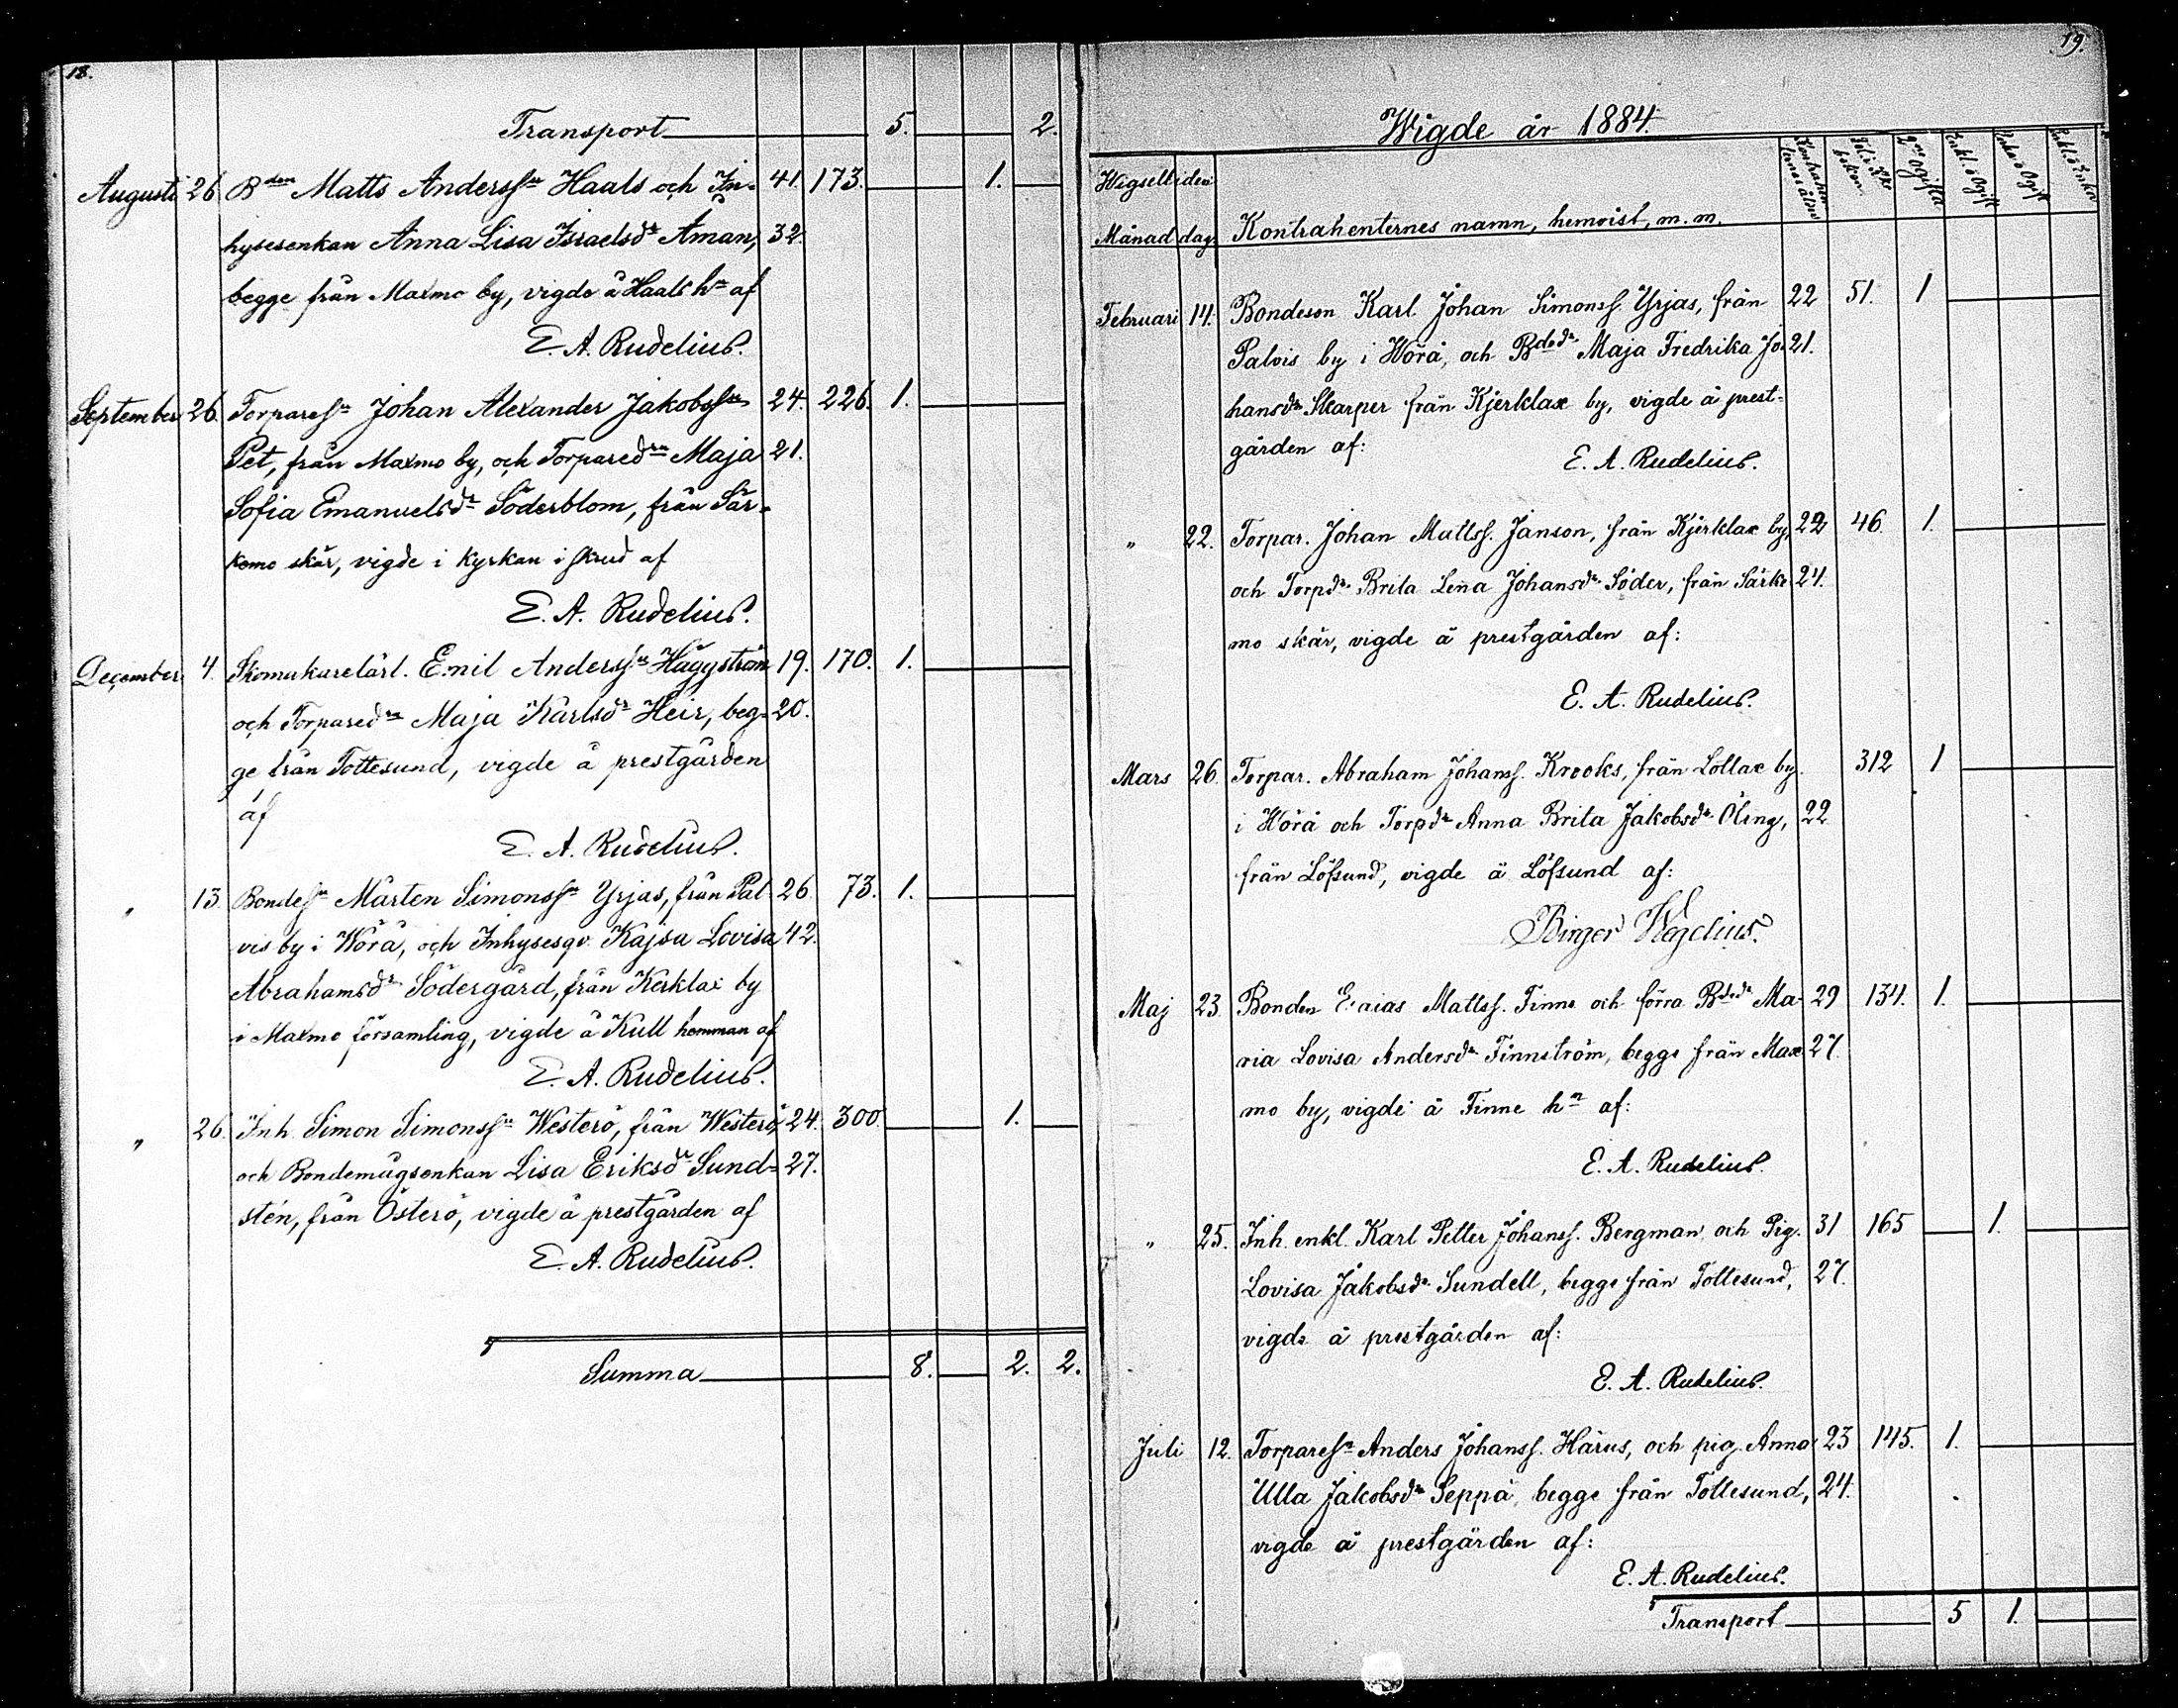 18.
Transport 5. 2.
Augusti 26. Bden Matts Anderssn Haals och In- 41. 173. 1.
hysesenkan Anna Lisa Israelsdr Åman, 32.
begge från Maxmo by, vigde å Haals hn af
E. A. Rudelius.
September 26. Torparessn Johan Alexander Jakobssn 24. 226. 1.
Pet, från Maxmo by, och Torparedrn Maja 21.
Sofia Emanuelsdr Söderblom, från Sär-
kemo skär, vigde i kyrkan i skrud af
E. A. Rudelius.
December 4. Skomakarelärl. Emil Anderssn Häggström 19. 170. 1.
och Torparedrn Maja Karlsdr Heir, beg- 20.
ge från Tottesund, vigde å prestgården
af
E. A. Rudelius.
" 13. Bondessn Mårten Simonssn Yrjas, från Pal- 26. 73. 1.
vis by i Wörå, och Inhysesqv. Kajsa Lovisa 42.
Abrahamsdr Södergård, från Kerklax by
i Maxmo församling, vigde å Kull hemman af
E. A. Rudelius.
" 26. Inh. Simon Simonssn Westerö, från Westerö, 24. 300. 1.
och Bondemågsenkan Lisa Eriksdr Sund- 27.
stén, från Österö, vigde å prestgården af
E. A. Rudelius.
Summa 8. 2. 2.
19.
Wigde år 1884.
Wigseltiden
Månad dag. Kontrahenternes namn, hemvist, m. m.
Februari 14. Bondeson Karl Johan Simonss. Yrjas, från 22 51. 1
Palvis by i Wörå, och Bdedr Maja Fredrika Jo- 21.
hansdr Skarper från Kjerklax by, vigde å prest-
gården af:
E. A. Rudelius.
" 22. Torpar. Johan Mattss. Janson, från Kjerklax by, 22 46. 1.
och Torpdr Brita Lena Johansdr Söder, från Särke- 24.
mo skär, vigde å prestgården af:
E. A. Rudelius.
Mars 26. Torpar. Abraham Johanss. Krooks, från Lotlax by 312 1
i Wörå och Torpdr Anna Brita Jakobsdr Öling, 22
från Löfsund, vigde å Löfsund af:
Birger Wegelius.
Maj 23. Bonden Esaias Mattss. Finne och förra Bdedr Ma- 29 134. 1.
ria Lovisa Andersdr Finnström, begge från Max- 27.
mo by, vigde å Finne hn af:
E. A. Rudelius.
" 25. Inh. enkl. Karl Petter Johanss. Bergman och Pig. 31 165 1.
Lovisa Jakobsdr Sundell, begge från Tottesund, 27.
vigde å prestgården af:
E. A. Rudelius.
Juli 12. Torparessn Anders Johanss. Härus, och pig. Anna 23 145. 1.
Ulla Jakobsdr Seppä, begge från Tottesund, 24.
vigde å prestgården af:
E. A. Rudelius.
Transport 5 1.